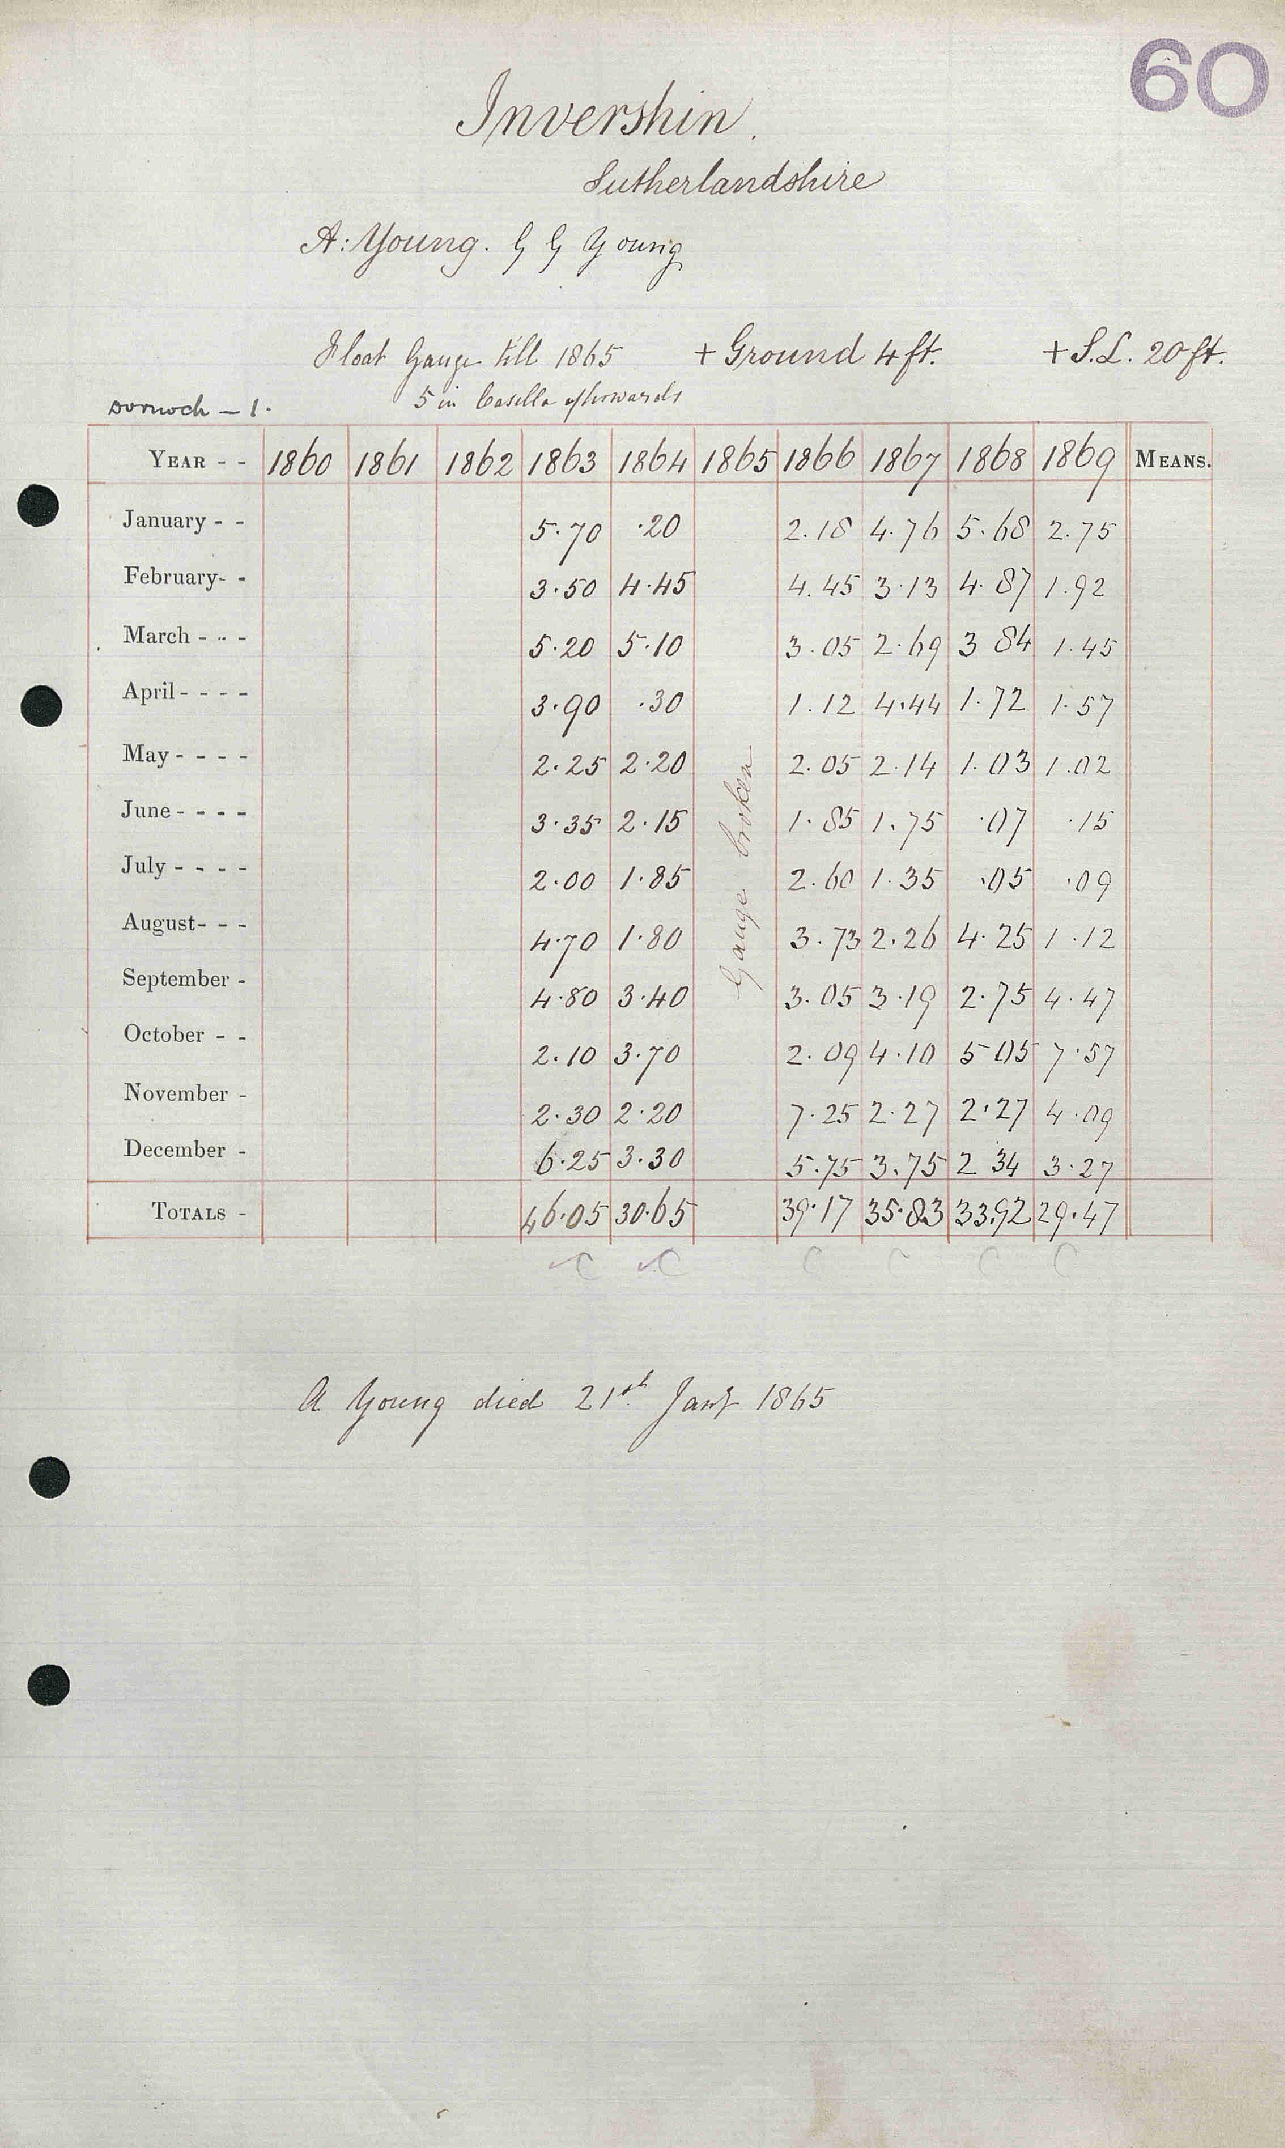 60
Invershin.
Sutherlandshire
A: Young. G G Young
Float Gauge till 1865 + Ground 4 ft. + S.L. 20 ft.
5 in Casella afterwards
Dornoch - 1.
YEAR - - 1860 1861 1862 1863 1864 1865 1866 1867 1868 1869 MEANS.
January - - 5.70 .20 2.18 4.76 5.68 2.75
February- - 3.50 4.45 4.45 3.13 4.87 1.92
March - - - 5.20 5.10 3.05 2.69 3 84 1.45
April - - - - 3.90 .30 1.12 4.44 1.72 1.57
May - - - - 2.25 2.20 2.05 2.14 1.03 1.02
June - - - - 3.35 2.15 1.85 1.75 .07 .15
July - - - - 2.00 1.85 2.60 1.35 .05 .09
August- - - 4.70 1.80 3.73 2.26 4.25 1.12
September - 4.80 3.40 3.05 3.19 2.75 4.47
October - - 2.10 3.70 2.09 4.10 5 05 7.57
November - 2.30 2.20 7.25 2.27 2.27 4.09
December - 6.25 3.30 5.75 3.75 2 34 3.27
Gauge broken
TOTALS - 46.05 30.65 39.17 35.83 33.92 29.47
C C C C C C
A Young died 21st Jany 1865